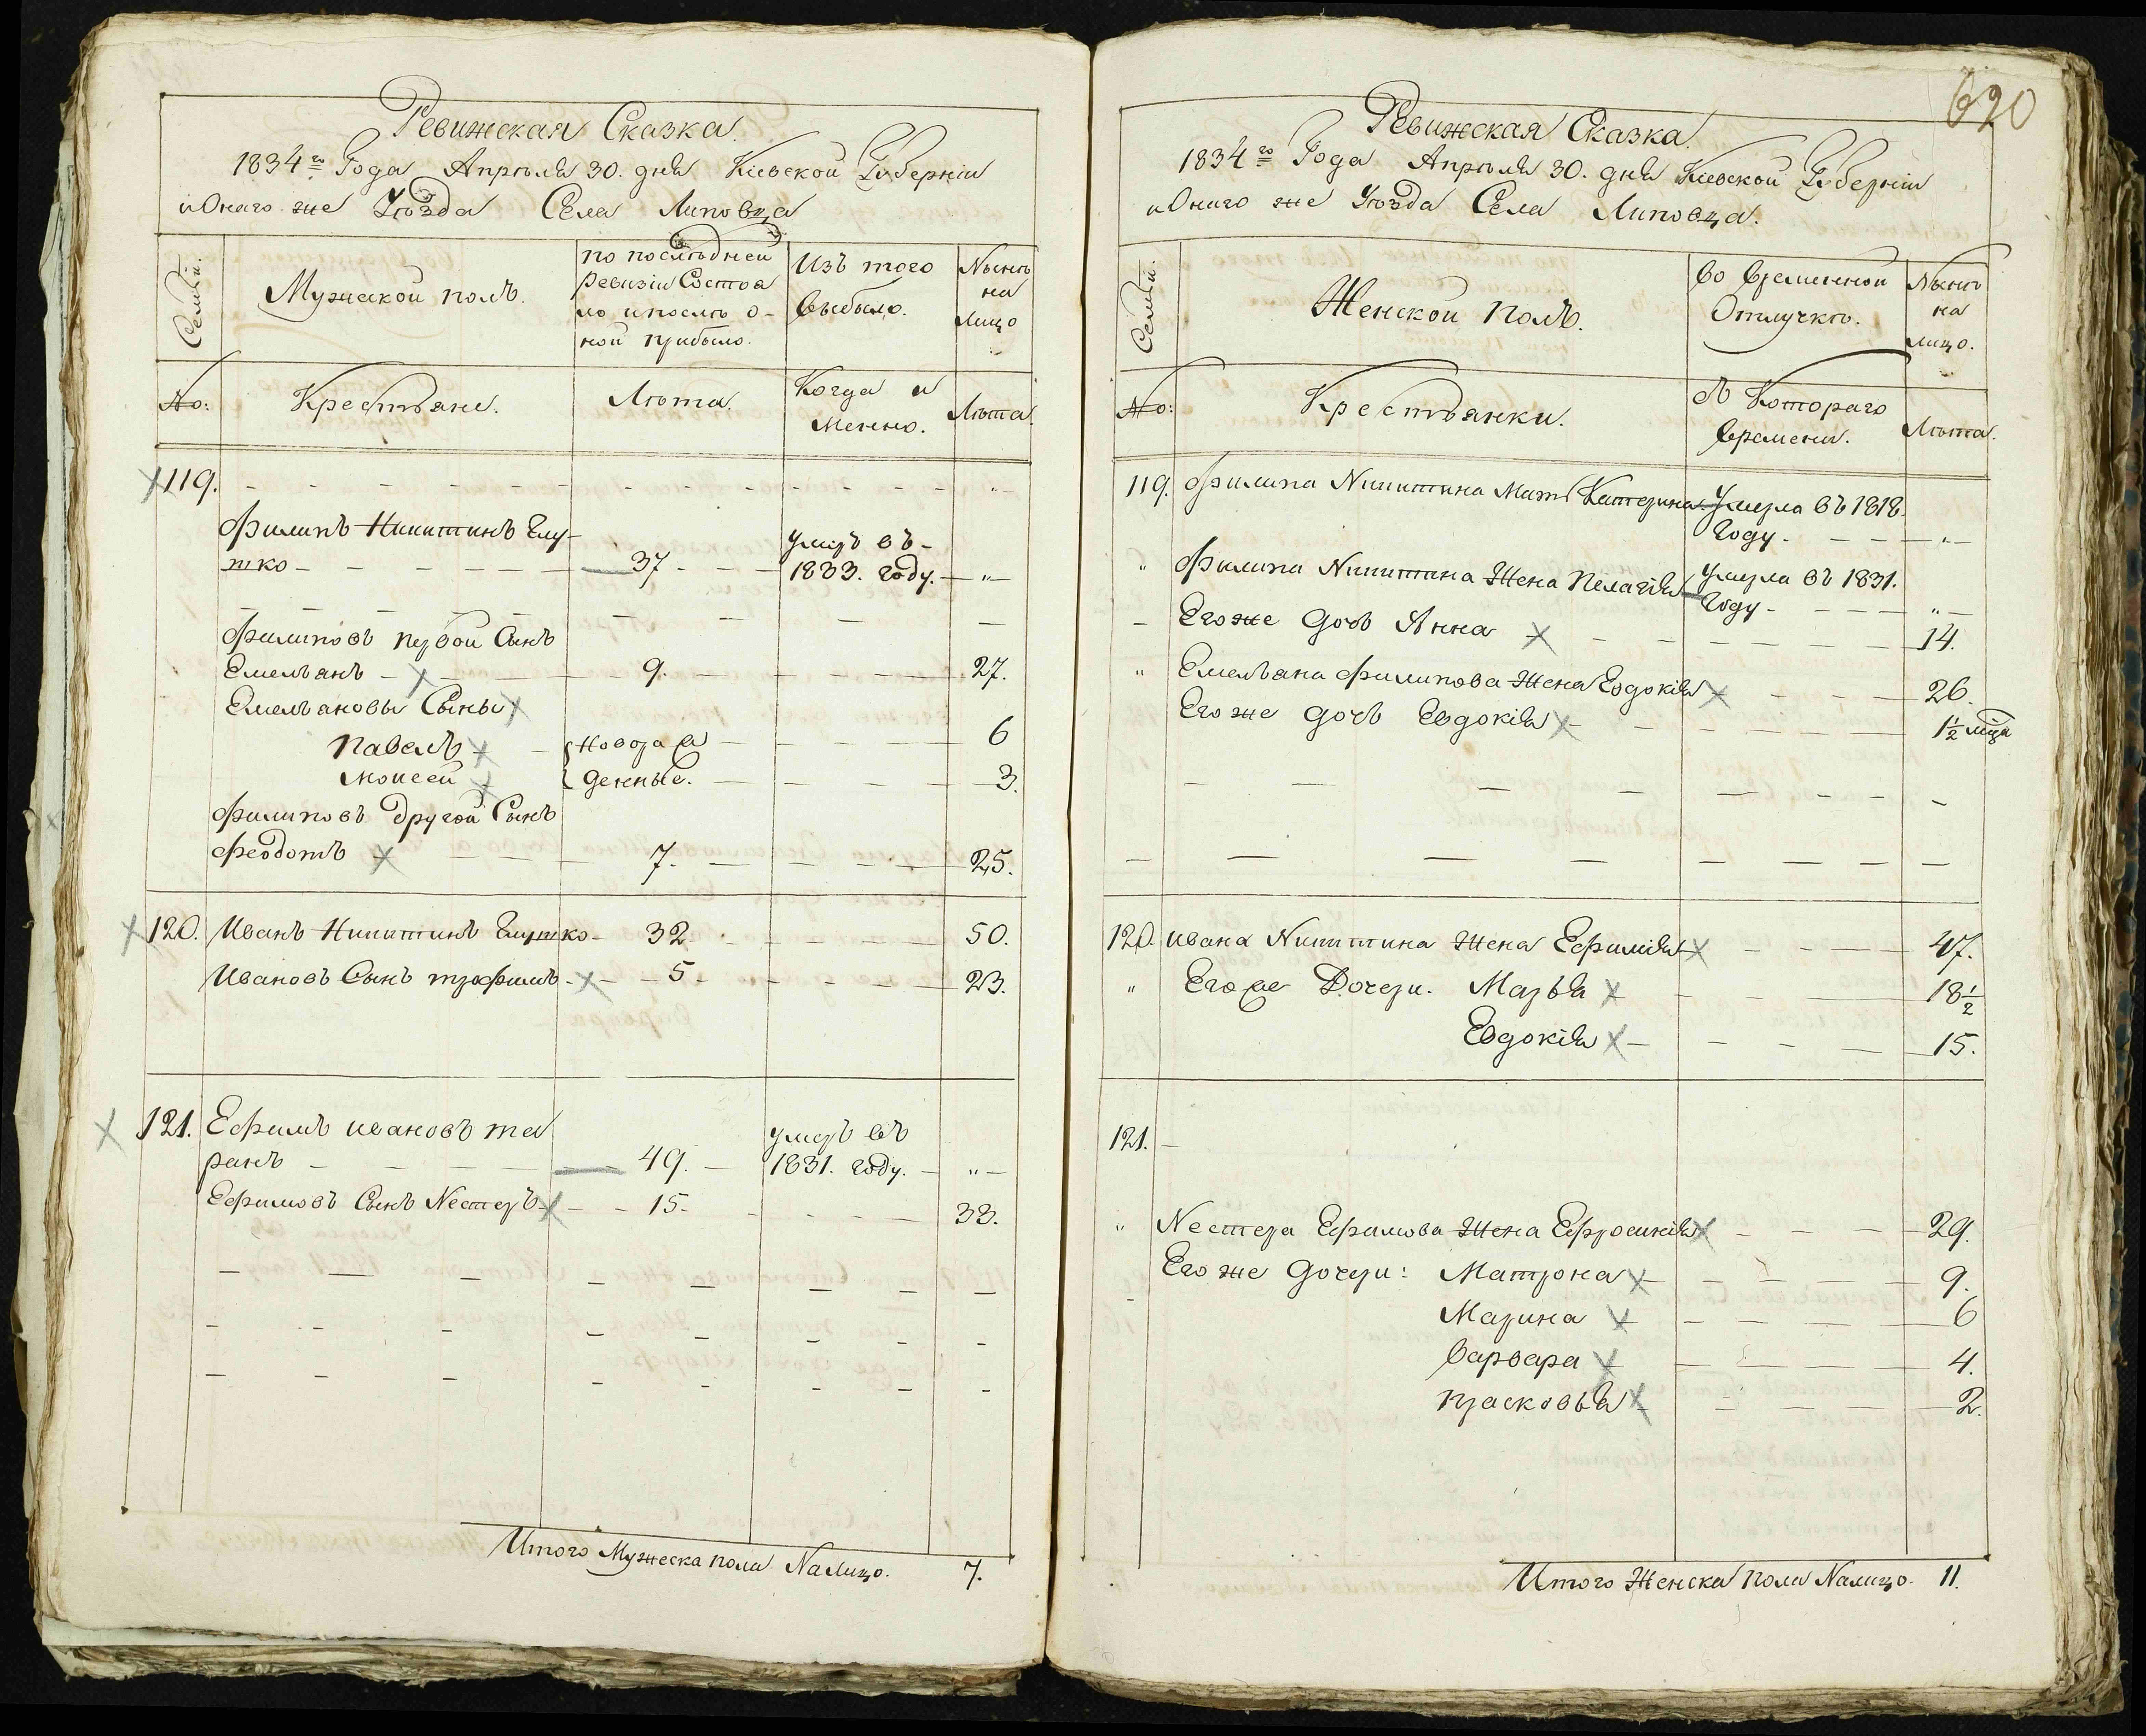 Ревижская Сказка.
1834го Года Апреля 30. дня Кіевской Губерніи
и Онаго же Уѣзда Села Липовца
Семьи.
Мужескои полъ.
по послѣднеи
ревизіи Состоя
ло и послѣ о-
ной прибыло.
Изъ того
выбыло.
Нынѣ
на
лицо
No:
Крестьяне.
Лѣта.
Когда и
менно.
Лѣта.
119.
Филипъ Никитинъ Глу-
шко 37 умеръ въ
1833. году. "
Филиповъ первой Сынъ
Емельянъ 9. 27.
Емельяновы Сыны
Павелъ новорож 6
Моисей денные. 3.
Филиповъ другой Сынъ
Феодотъ 7. 25.
120. Иванъ Никитинъ Глушко 32 50.
Ивановъ Сынъ трофимъ 5 23.
121. Ефимъ ивановъ та
ранъ 49. умеръ въ
1831. году. "
Ефимовъ Сынъ Нестеръ 15. 33.
Итого Мужеска пола Налицо. 7.
690
Ревижская Сказка.
1834го Года Апреля 30. дня Кіевской Губерніи
и Онаго же Уѣзда Села Липовца.
Семьи.
Женской полъ.
Во временной
Отлучкѣ.
Нынѣ
на
лицо.
No:
Крестьянки.
Съ Котораго
времени.
Лѣта.
119. Филипа Никитина Мать Катерина Умерла въ 1818.
Году. "
" Филипа Никитина Жена Пелагія Умерла въ 1831.
Году "
Его же дочь Анна 14.
" Емельяна Филипова Жена Евдокія 26.
Его же дочь Евдокія 1½ мца
120. Ивана Никитина Жена Ефимія 47.
" Его же Дочери. Марья 18½
Евдокія 15.
121.
" Нестера Ефимова Жена Ефросинія 29.
Его же дочери: Матрона 9.
Марина 6
Варвара 4.
Прасковья 2.
Итого Женска пола Налицо. 11.